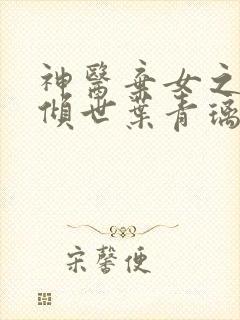 神醫棄女之
傾世葉青璃
宋馨便